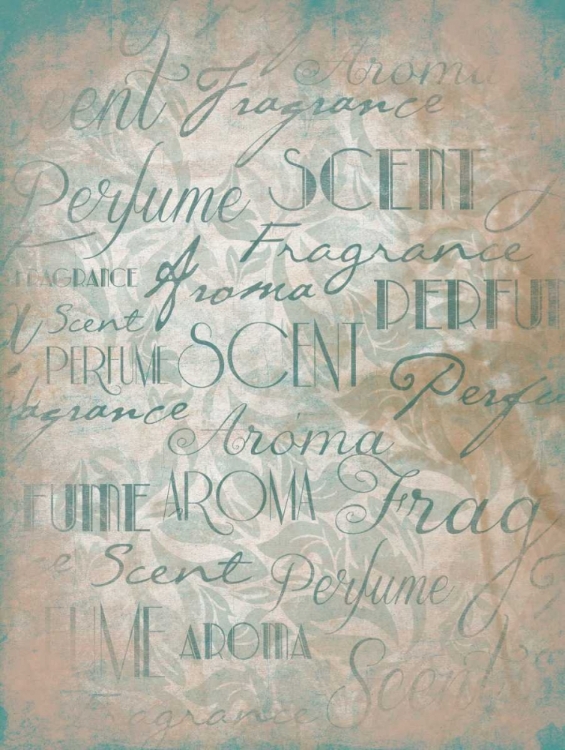 Aroma
cent Fragrance
Perfume SCENT
Fragrance
FRAGRANCE Aroma PERFUM
Scent
PERFUME SCENT
Perfu
agrance
Aroma
FUME AROMA Frag
e Scent Perfume
FUME AROMA
Scent
agrance